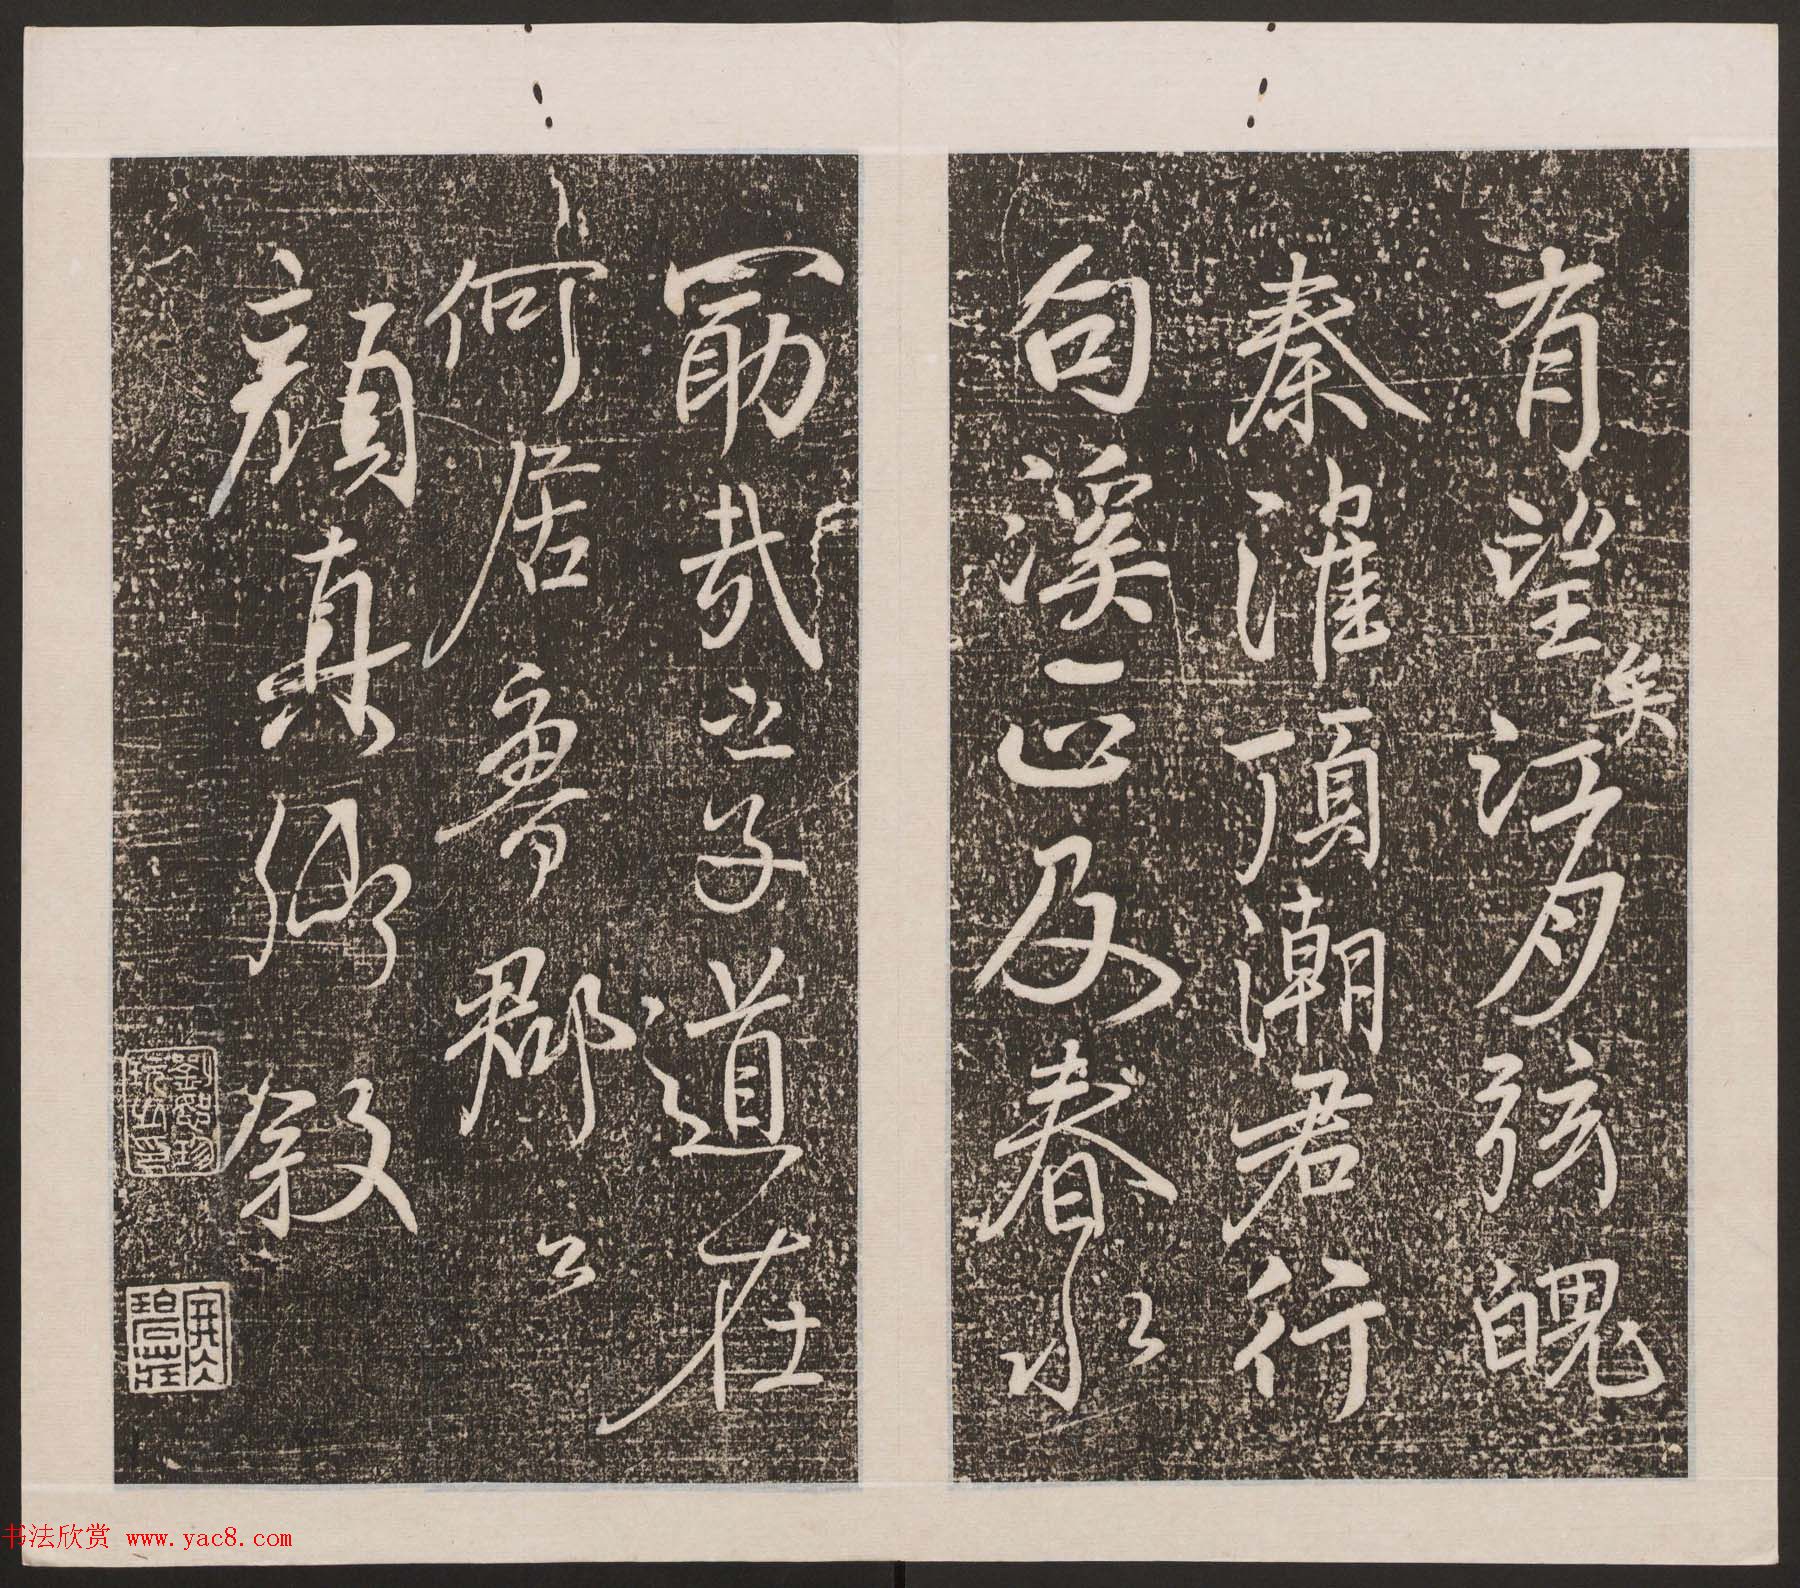 有望矣江月弦魄
秦淮頂潮君行
句溪正及春水
勗哉之子道在
何居魯郡公
顏真卿敘
书法欣赏 www.yac8.com